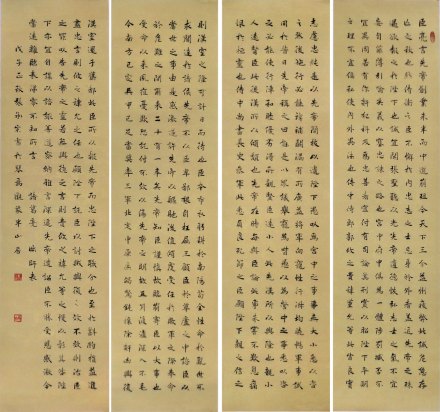 臣亮言先帝創業未半而中道崩殂今天下三分益州疲弊此誠危急存
亡之秋也然侍衛之臣不懈於內忠志之士忘身於外者蓋追先帝之殊遇欲報之於
陛下也誠宜開張聖聽以光先帝遺德恢弘志士之氣不宜妄
自菲薄引喻失義以塞忠諫之路也宮中府中俱為一體陟罰臧否不宜
異同若有作姦犯科及為忠善者宜付有司論其刑賞以昭陛下平明
之理不宜偏私使內外異法也侍中侍郎郭攸之費禕董允等此皆良實
志慮忠純是以先帝簡拔以遺陛下愚以為宮中之事事無大小悉以咨
之然後施行必能裨補闕漏有所廣益將軍向寵性行淑均曉暢軍事試
用於昔日先帝稱之曰能是以眾議舉寵為督愚以為營中之事悉以咨
之必能使行陣和睦優劣得所親賢臣遠小人此先漢所以興隆也親小
人遠賢臣此後漢所以傾頹也先帝在時每與臣論此事未嘗不歎息痛
恨於桓靈也侍中尚書長史參軍此悉貞良死節之臣願陛下親之信之
則漢室之隆可計日而待也臣本布衣躬耕於南陽苟全性命於亂世不
求聞達於諸侯先帝不以臣卑鄙猥自枉屈三顧臣於草廬之中諮臣以
當世之事由是感激遂許先帝以驅馳後值傾覆受任於敗軍之際奉命
於危難之間爾來二十有一年矣先帝知臣謹慎故臨崩寄臣以大事也
受命以來夙夜憂歎恐託付不效以傷先帝之明故五月渡瀘深入不毛
今南方已定兵甲已足當獎率三軍北定中原庶竭駑鈍攘除姦凶興復
漢室還於舊都此臣所以報先帝而忠陛下之職分也至於斟酌損益進
盡忠言則攸之禕允之任也願陛下託臣以討賊興復之效不效則治臣
之罪以告先帝之靈若無興德之言則責攸之禕允等之慢以彰其咎陛
下亦宜自謀以諮諏善道察納雅言深追先帝遺詔臣不勝受恩感激今
當遠離臨表涕零不知所言 諸葛亮 出師表
戊子